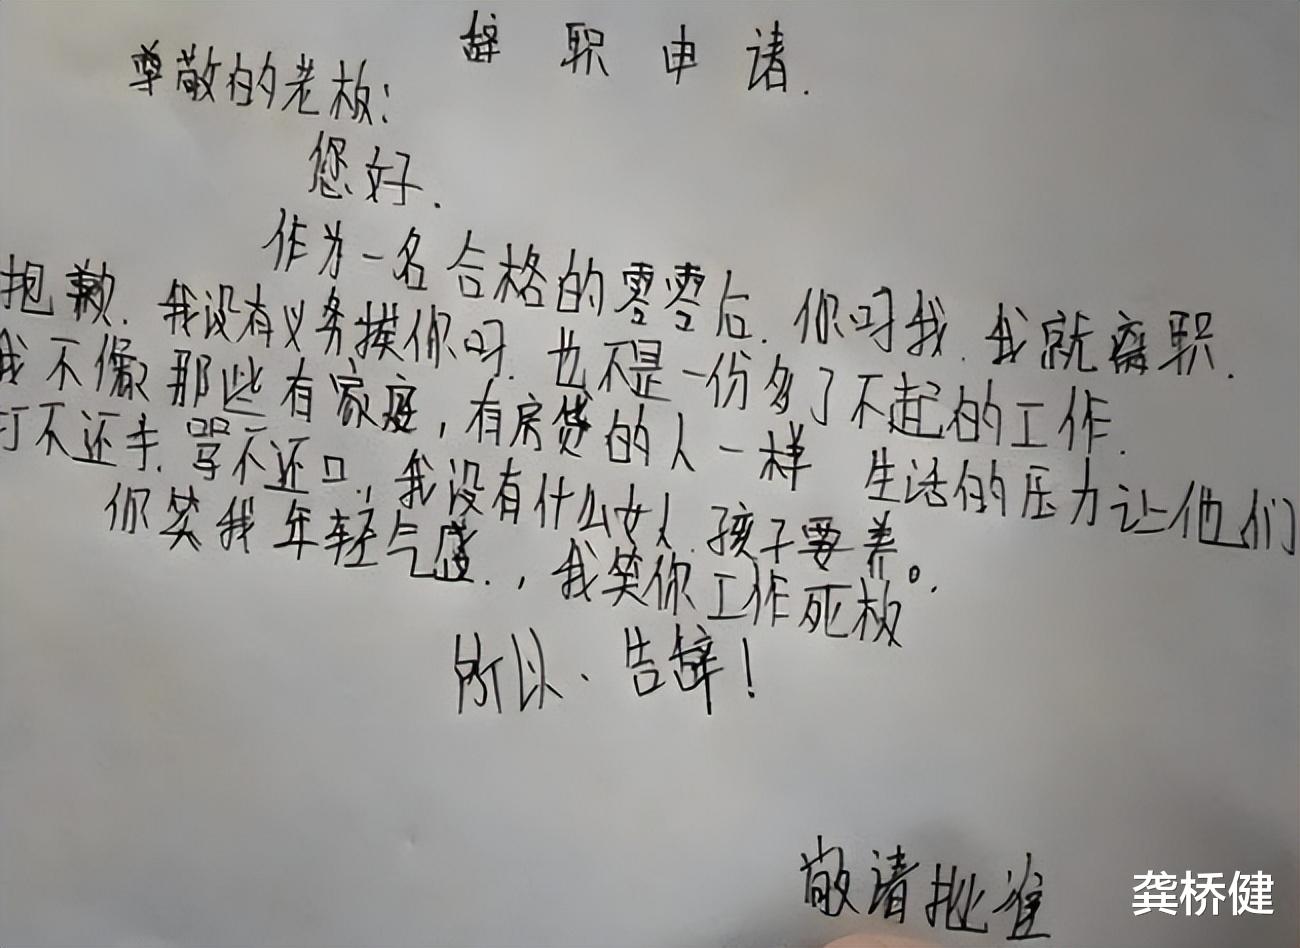 辞职申请.
尊敬的老板：
您好.
作为一名合格的零零后.你叼我.我就离职.
抱歉.我没有义务揍你叼.也不是一份多了不起的工作.
我不像那些有家庭，有房贷的人一样 生活的压力让他们
打不还手.骂不还口，我没有什么女人.孩子要养。
你笑我年轻气盛.，我笑你工作死板.
所以、告辞！
敬请批准
龚桥健